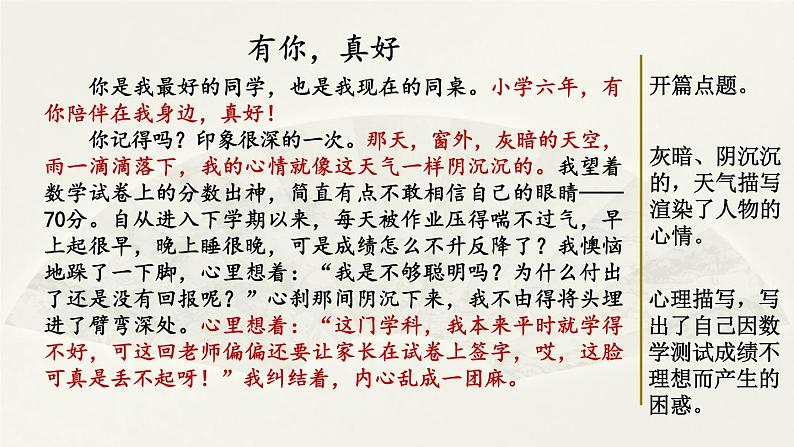 有你，真好
你是我最好的同学，也是我现在的同桌。小学六年，有
你陪伴在我身边，真好！
你记得吗？印象很深的一次。那天，窗外，灰暗的天空，
雨一滴滴落下，我的心情就像这天气一样阴沉沉的。我望着
数学试卷上的分数出神，简直有点不敢相信自己的眼睛——
70分。自从进入下学期以来，每天被作业压得喘不过气，早
上起很早，晚上睡很晚，可是成绩怎么不升反降了？我懊恼
地跺了一下脚，心里想着：“我是不够聪明吗？为什么付出
了还是没有回报呢？”心刹那间阴沉下来，我不由得将头埋
进了臂弯深处。心里想着：“这门学科，我本来平时就学得
不好，可这回老师偏偏还要让家长在试卷上签字，哎，这脸
可真是丢不起呀！”我纠结着，内心乱成一团麻。
开篇点题。
灰暗、阴沉沉
的，天气描写
渲染了人物的
心情。
心理描写，写
出了自己因数
学测试成绩不
理想而产生的
困惑。